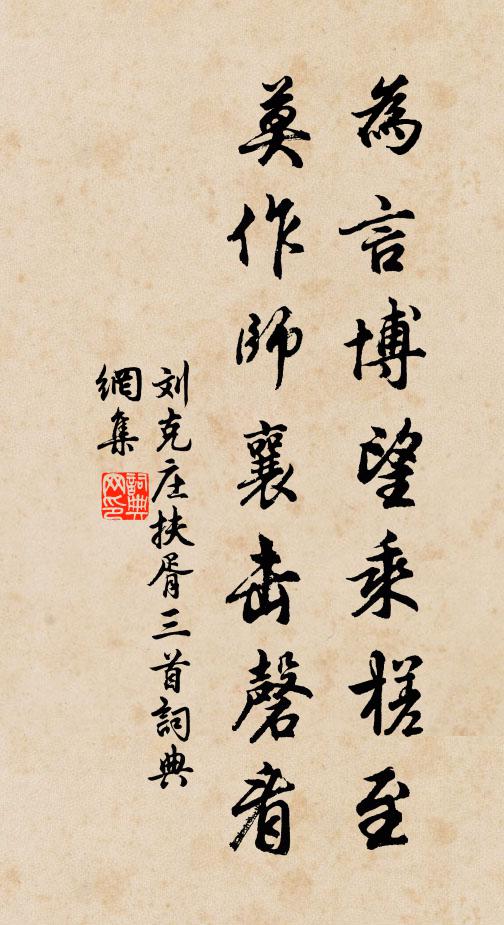 為言博望乘槎至
莫作師襄击磬看
刘克庄扶胥三首詞典
網集
詞典
网印